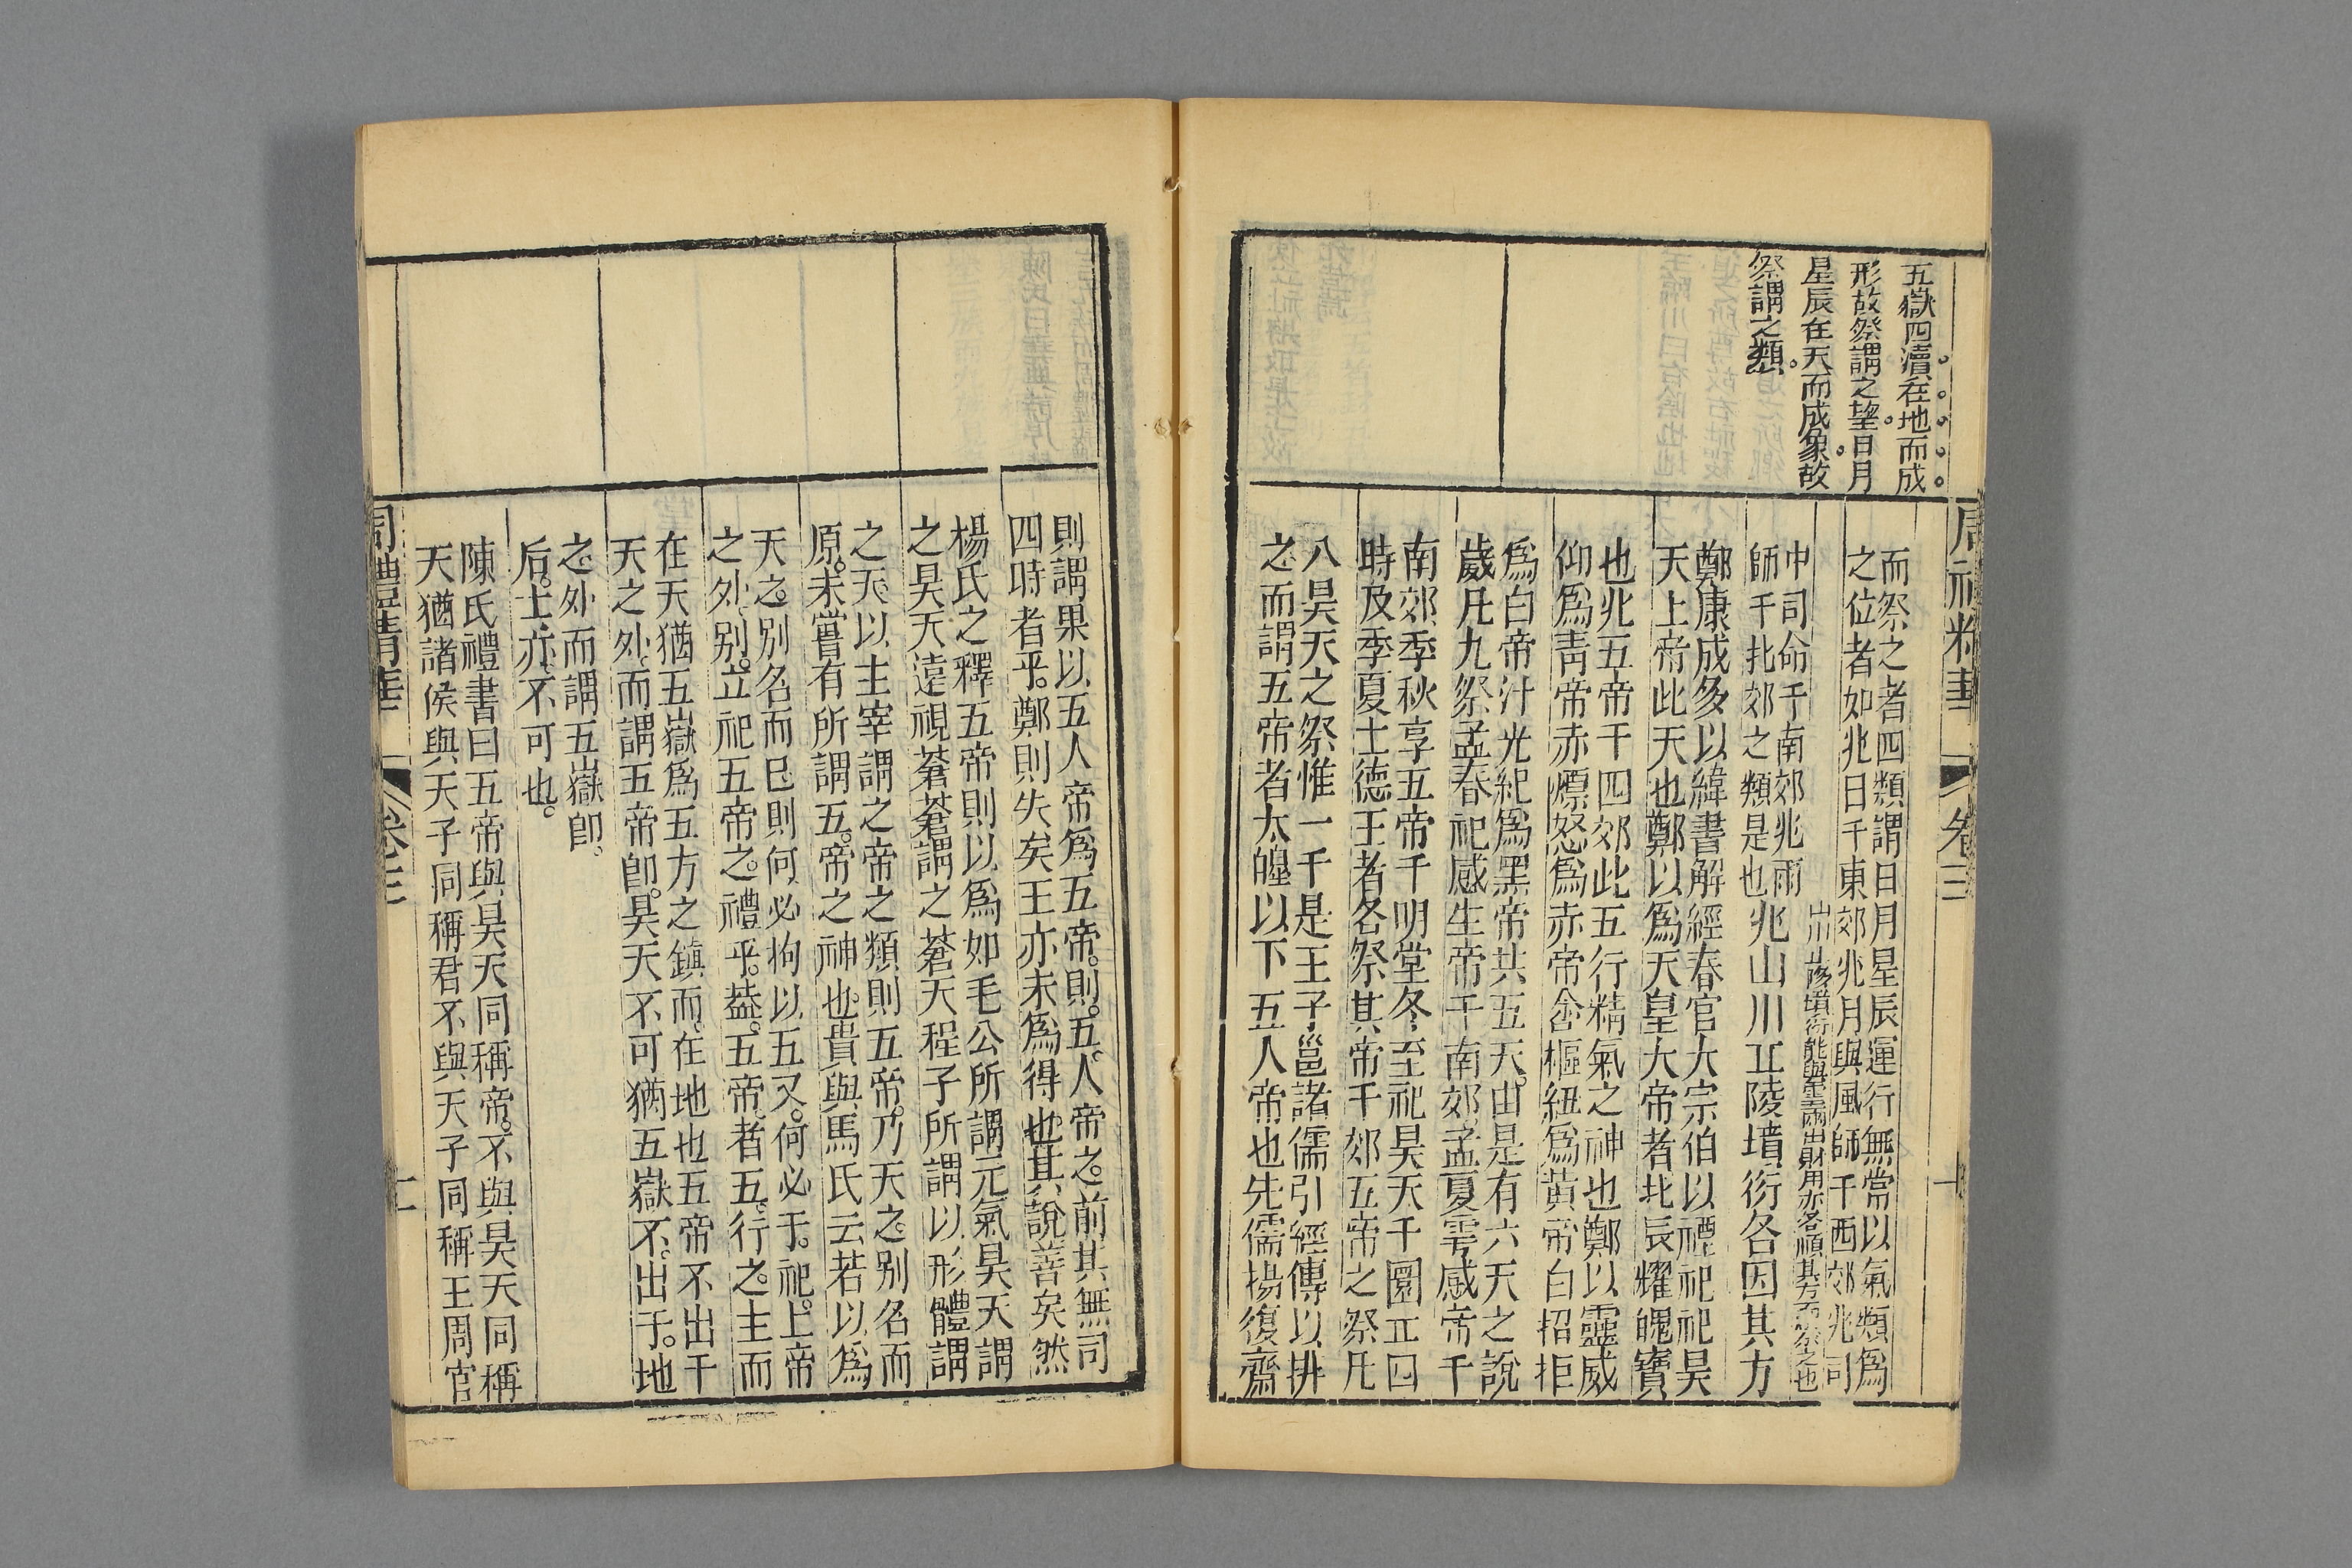 周禮精華
卷三
五嶽四瀆在地而成
形故祭謂之望日月
星辰在天而成象故
祭謂之類
而祭之者四類謂日月星辰運行無常以氣類為
之位者如兆日于東郊兆月與風師于西郊兆司
中司命于南郊兆雨
師于北郊之類是也
兆山川丘陵墳衍各因其方
鄭康成多以緯書解經春官大宗伯以禋祀祀昊
天上帝此天也鄭以爲天皇大帝者北辰耀魄寶
也兆五帝于四郊此五行精氣之神也鄭以靈威
仰爲靑帝赤熛怒爲赤帝含樞紐爲黃帝白招拒
爲白帝汁光紀爲黑帝共五天由是有六天之說
歲凡九祭孟春祀感生帝于南郊孟夏雩感帝于
南郊季秋享五帝于明堂冬至祀昊天于圜丘四
時及季夏土德王者各祭其帝于郊五帝之祭凡
八昊天之祭惟一于是王子邕諸儒引經傳以排
之而謂五帝者太皥以下五人帝也先儒揚復齋
則謂果以五人帝爲五帝則五人帝之前其無司
四時者乎鄭則失矣王亦未爲得也其說善矣然
楊氏之釋五帝則以爲如毛公所謂元氣昊天謂
之昊天遠視蒼蒼謂之蒼天程子所謂以形體謂
之天以主宰謂之帝之類則五帝乃天之別名而
原未嘗有所謂五帝之神也貴與馬氏云若以爲
天之別名而已則何必拘以五又何必于祀上帝
之外別立祀五帝之禮乎葢五帝者五行之主而
在天猶五嶽爲五方之鎮而在地也五帝不出于
天之外而謂五帝卽昊天不可猶五嶽不出于地
之外而謂五嶽卽
后土亦不可也
陳氏禮書曰五帝與昊天同稱帝不與昊天同稱
天猶諸侯與天子同稱君不與天子同稱王周官
周禮精華
卷三